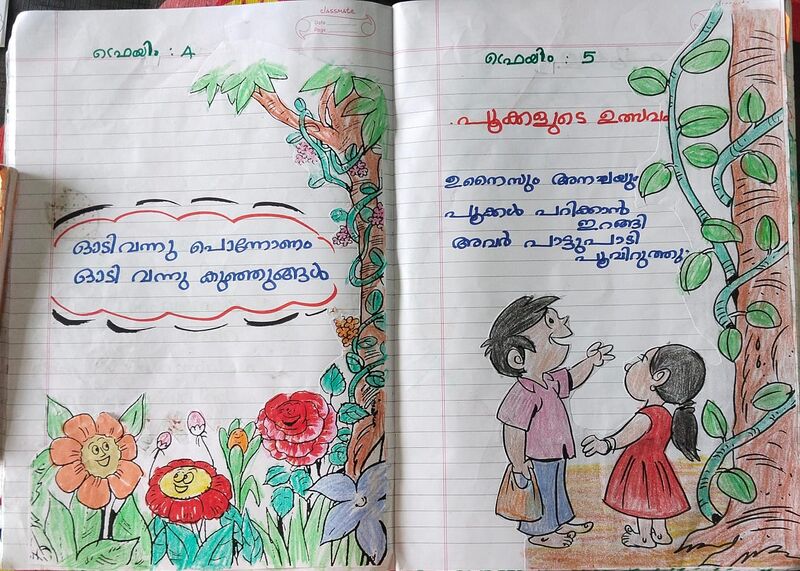 classmate
Date
Page
ഫ്രെയിം : 4
ഓടി വന്നു പൊന്നോണം
ഓടി വന്നു കുഞ്ഞുങ്ങൾ
ഫ്രെയിം : 5
പൂക്കളുടെ ഉത്സവം
ഉനൈസും അനച്ചയും
പൂക്കൾ പറിക്കാൻ
ഇറങ്ങി
അവർ പാട്ടുപാടി
പൂവിറുത്തു.